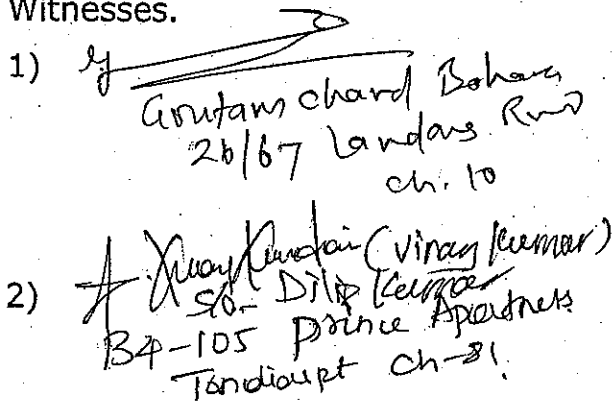 Witnesses.
1)
Goutam chand Bohara
26/67 Landons Road
ch. 10
2) (Vinay Kumar)
S/o- Dilip Kumar
B4-105 prince Apartments
Tondiarpet ch-81.